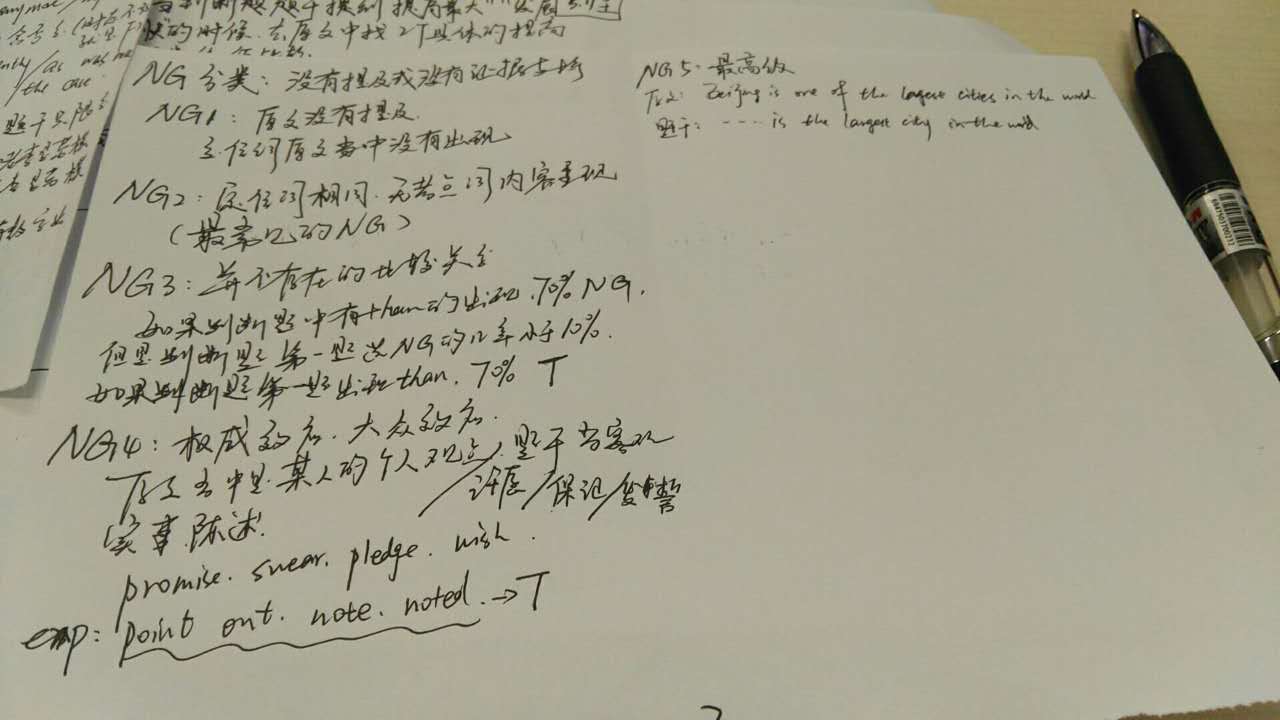 anymore/
的时候.去原文中找一个具体的提高
ently/as
the one
题干
NG分类：没有提及或没有证据支撑
NG1：原文没有提及.
定位词原文当中没有出现
NG2：定位词相同.无考点词内容呈现
（最常见的NG）
NG3：并不存在的比较关系
如果判断题中有than的出现.70% NG.
但是判断题第一题选NG的几率小于10%.
如果判断题第一题出现than. 70% T
NG4：权威效应.大众效应.
原文当中是某人的个人观点/许愿/保证/发誓.题干当客观
事实陈述.
promise. swear. pledge. wish.
exp: point out. note. noted. → T
NG5：最高级
原文：Beijing is one of the largest cities in the world
题干：---- is the largest city in the world